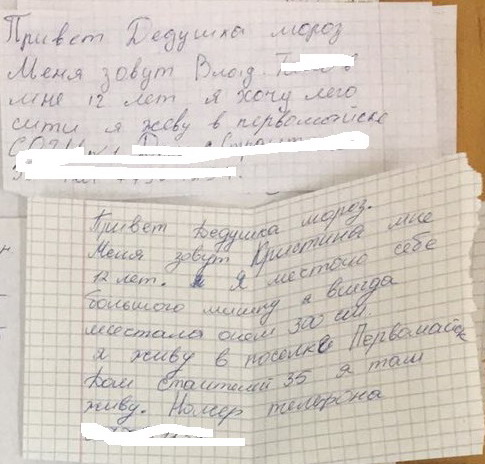 Привет Дедушка мороз
Меня зовут Влад
мне 12 лет я хочу лего
сити я жеву в первомайске
Привет Дедушка мороз.
Меня зовут Кристина мне
12 лет. Я местаю себе
большого мишку я всигда
месстала онем 300 см.
я живу в поселке Первомайск
Дом 35 я там
живу. Номер телефона